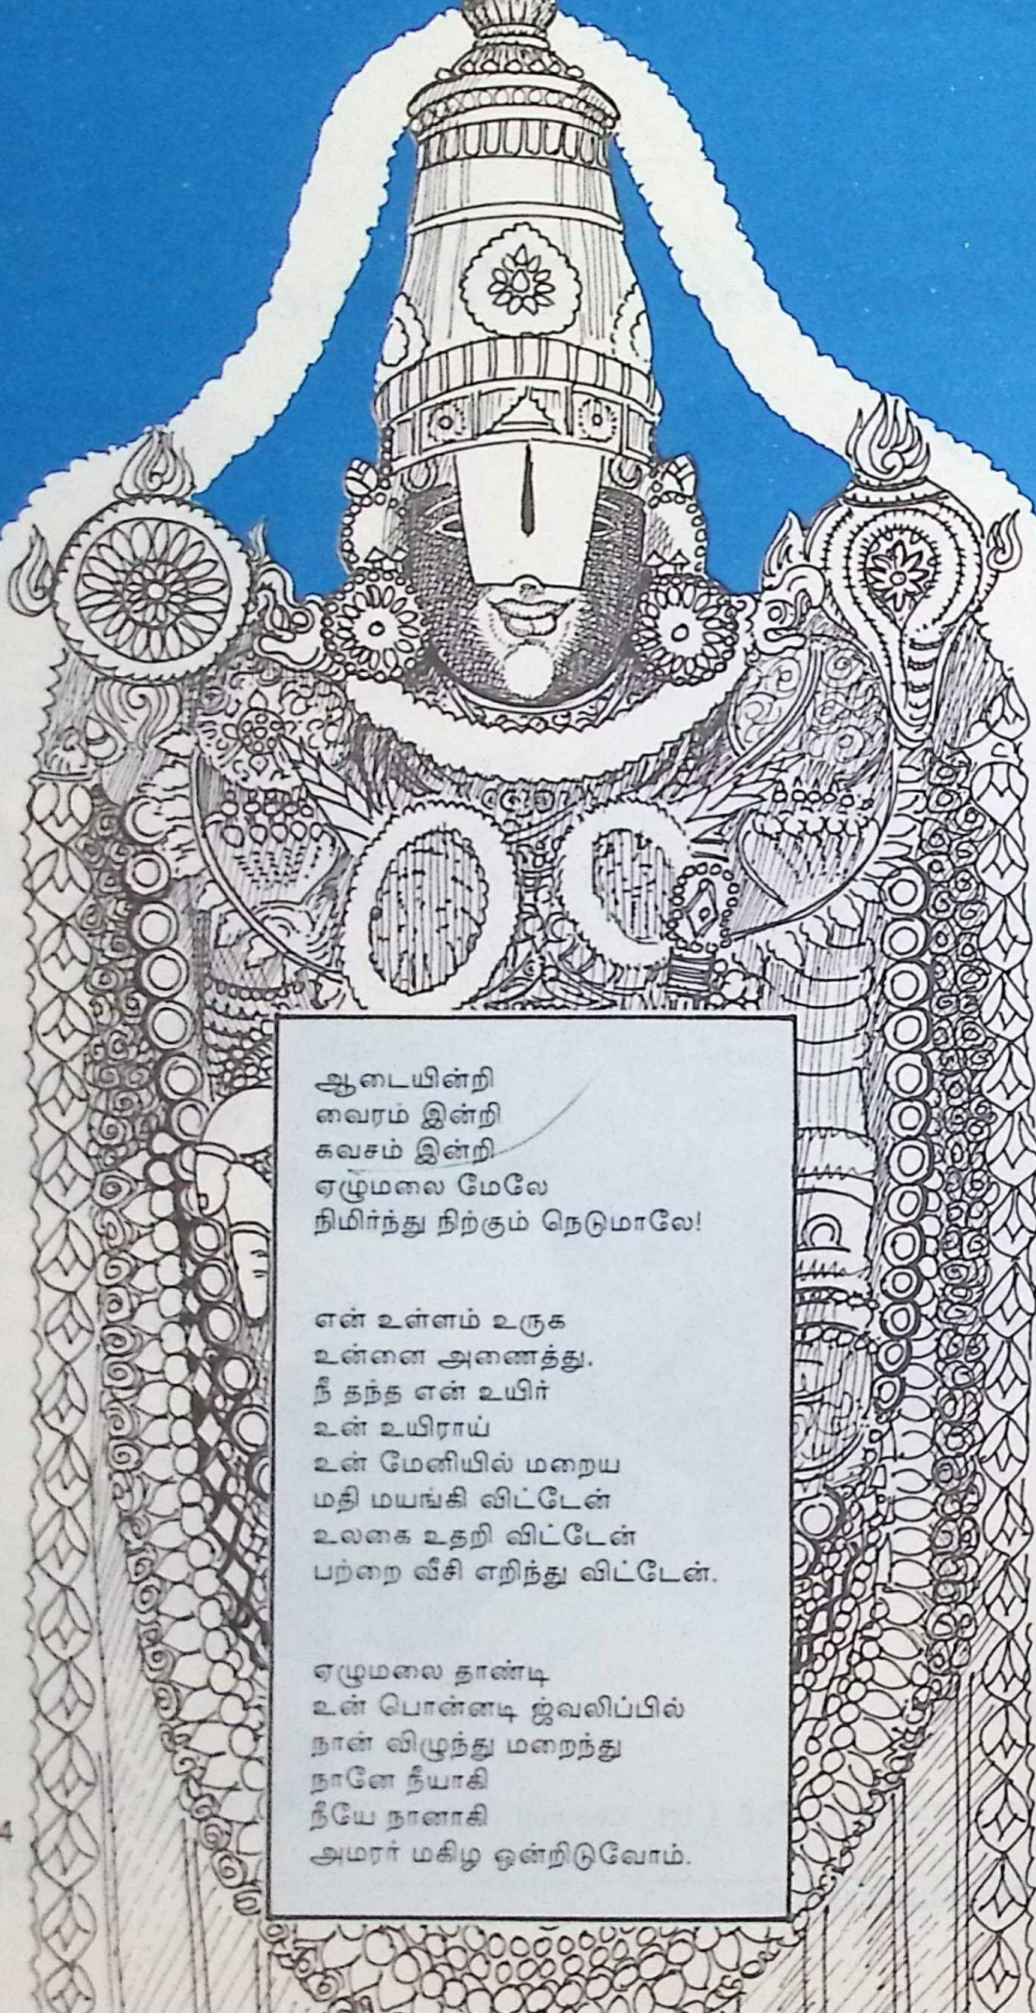 ஆடையின்றி
வைரம் இன்றி
கவசம் இன்றி
ஏழுமலை மேலே
நிமிர்ந்து நிற்கும் நெடுமாலே!
என் உள்ளம் உருக
உன்னை அணைத்து.
நீ தந்த என் உயிர்
உன் உயிராய்
உன் மேனியில் மறைய
மதி மயங்கி விட்டேன்
உலகை உதறி விட்டேன்
பற்றை வீசி எறிந்து விட்டேன்.
ஏழுமலை தாண்டி
உன் பொன்னடி ஜ்வலிப்பில்
நான் விழுந்து மறைந்து
நானே நீயாகி
நீயே நானாகி
அமரர் மகிழ ஒன்றிடுவோம்.
4